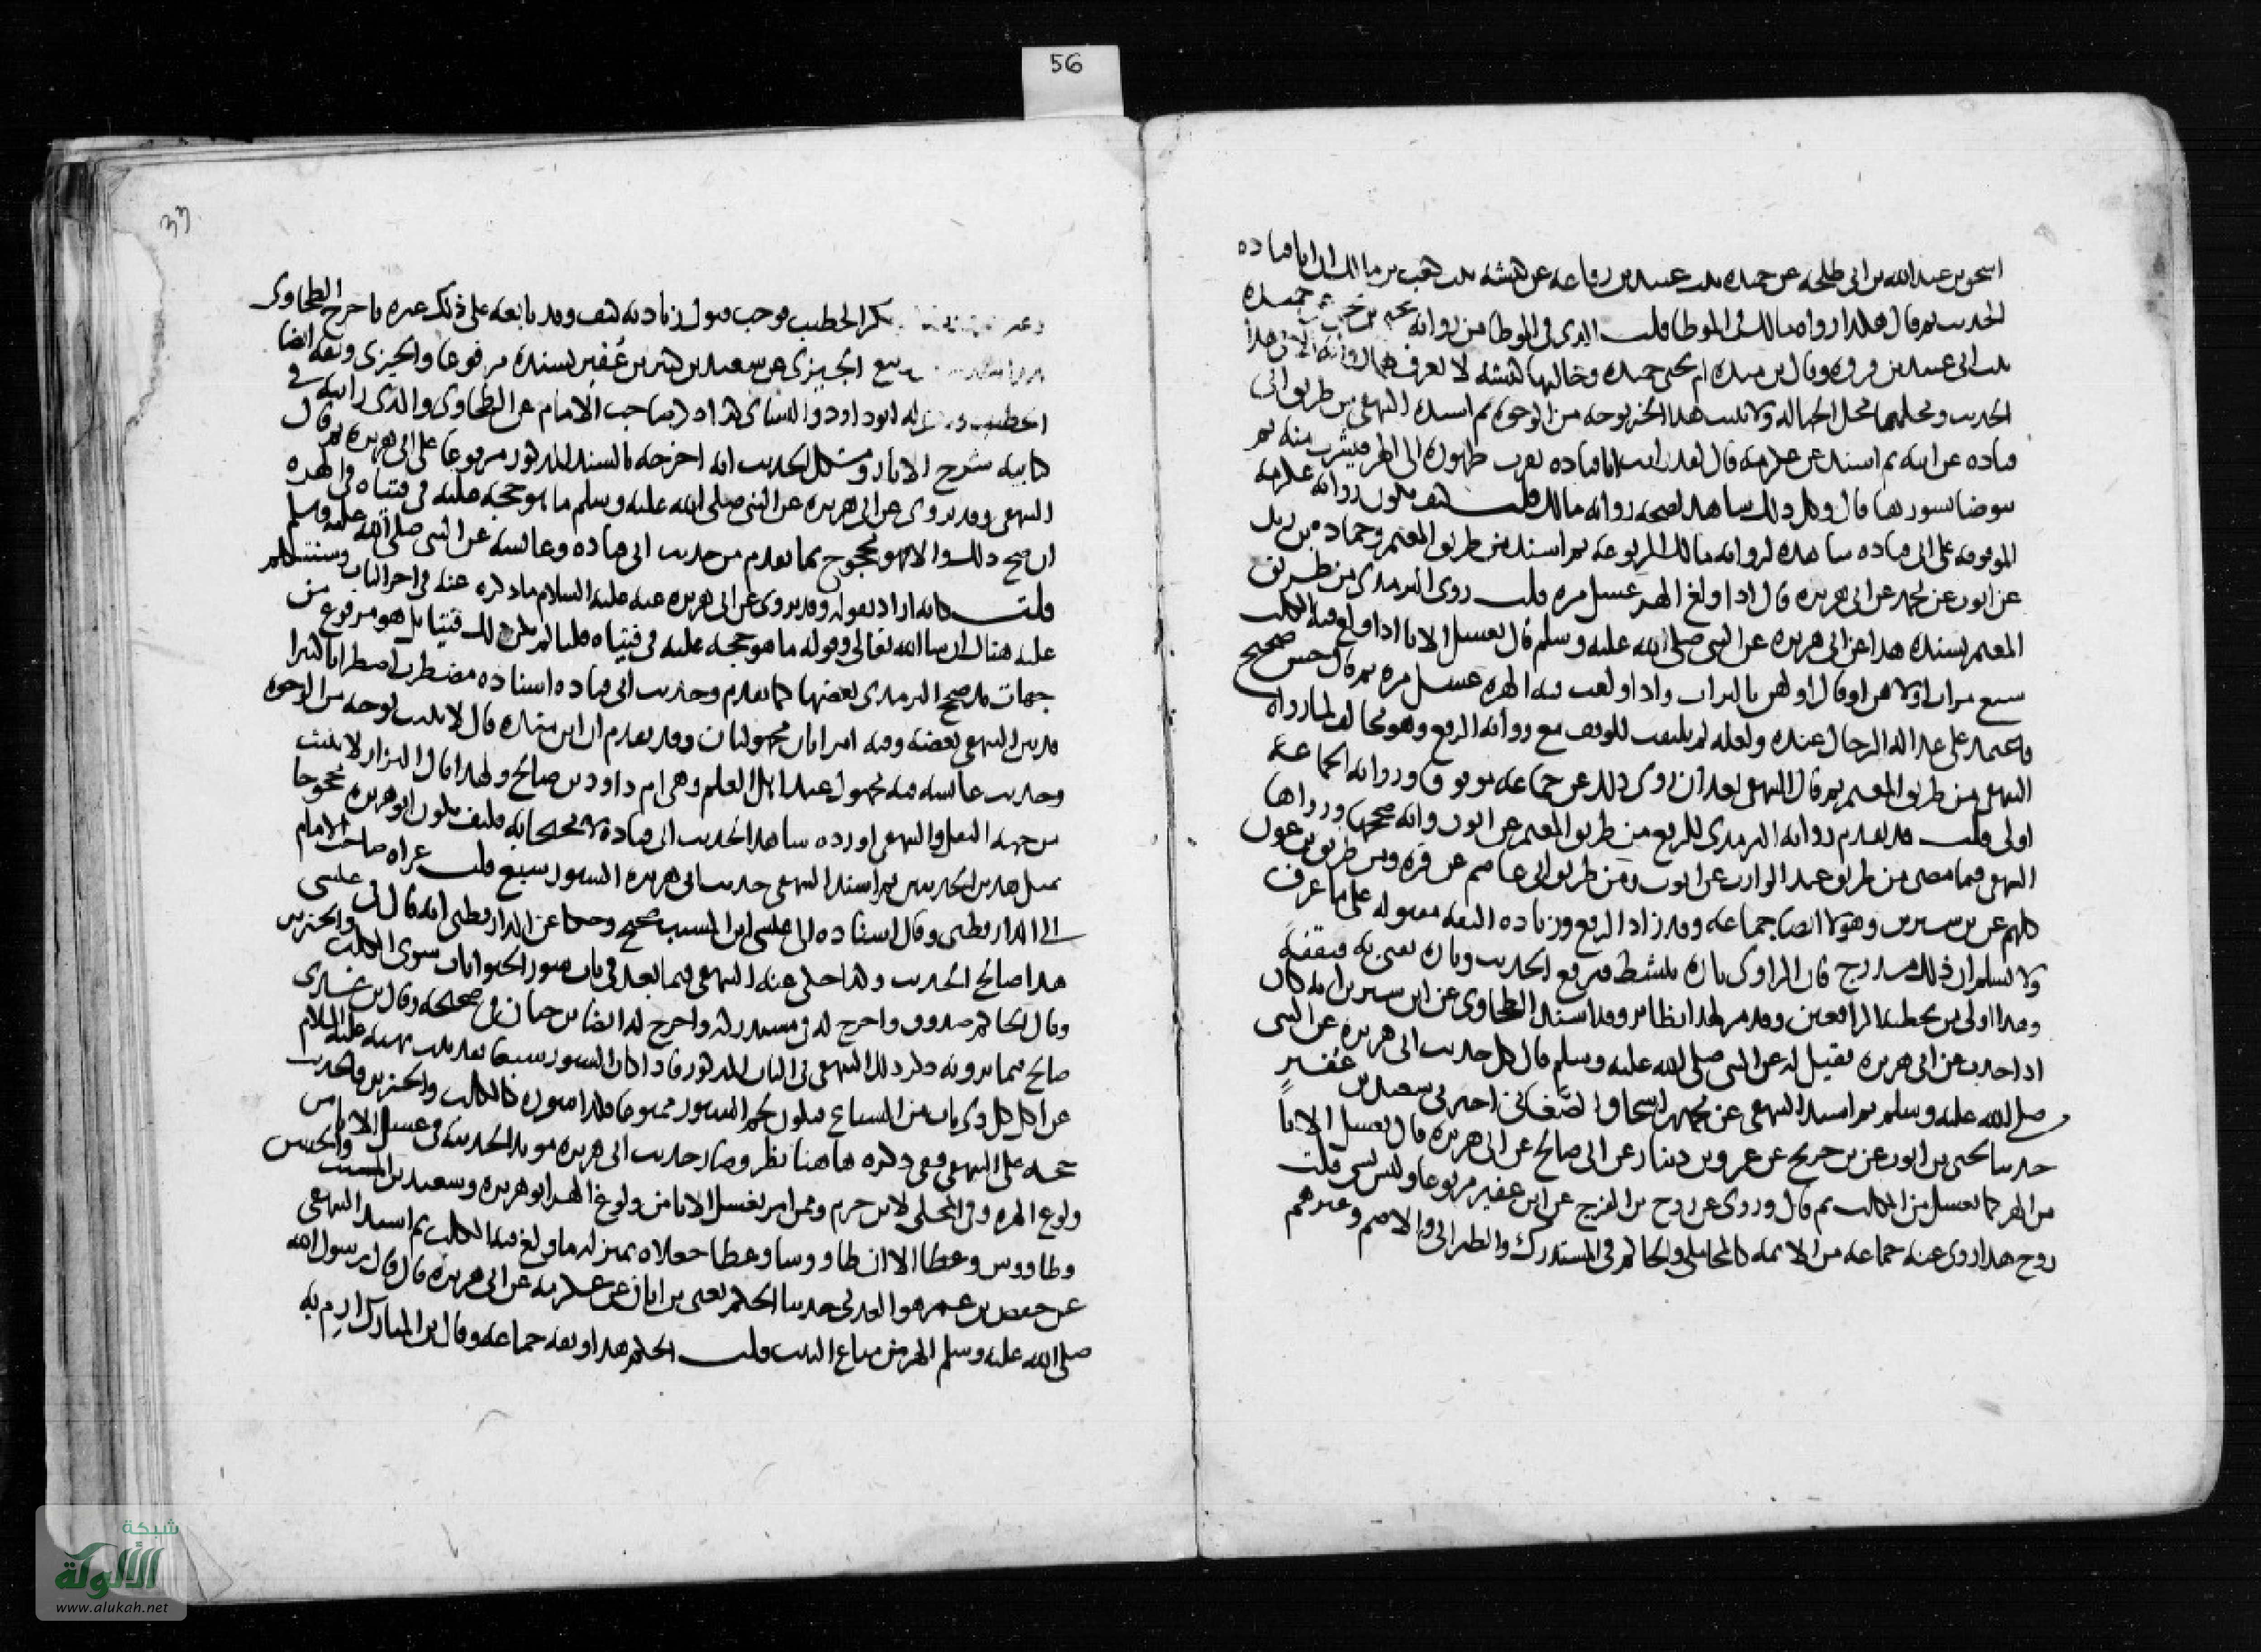 56
اسحق بن عبد الله بن ابى طلحة عن حميدة بنت عبيد بن رفاعة عن كبشة بنت كعب بن مالك ان ابا قتادة
الحديث ثم قال هكذا رواه مالك فى الموطا قلت الذى فى الموطا من رواية يحيى بن يحيى عن حميدة
بنت ابى عبيد بن فروة وقال بن منده ام يحيى حميدة وخالتها كبشة لا يعرف لهما رواية الا فى هذا
الحديث ومحلهما محل الجهالة ولا يثبت هذا الخبر بوجه من الوجوه ثم اسنده البيهقى من طريق ابن ابى
قتادة عن ابيه ثم اسند عن عكرمة قال لقد رايت ابا قتادة يقرب طهوره الى الهر فيشرب منه ثم
يتوضا بسورها قال وكل ذلك شاهد لصحة رواية مالك قلت كيف تكون رواية عكرمة
الموقوفة على ابى قتادة شاهدة لرواية مالك المرفوعة ثم اسند من طريق المعتمر وحماد بن زيد
عن ايوب عن محمد عن ابى هريرة قال اذا ولغ الهر غسل مرة قلت روى الترمذى من طريق
المعتمر بسنده هذا عن ابى هريرة عن النبى صلى الله عليه وسلم قال يغسل الاناء اذا ولغ فيه الكلب
سبع مرات اولاهن او قال اولهن بالتراب واذا ولغت فيه الهرة غسل مرة ثم قال حسن صحيح
فاعتمد على عدالة الرجال عنده ولعله لم يلتفت للوقف مع رواية الرفع وهو مخالف لما رواه
البيهقى من طريق المعتمر ثم قال البيهقى بعد ان روى ذلك عن جماعة موقوفا ورواية الجماعة
اولى قلت قد تقدم رواية الترمذى للرفع من طريق المعتمر عن ايوب وانه صححها ورواها
البيهقى فيما مضى من طريق عبد الوارث عن ايوب ومن طريق ابى عاصم عن قرة ومن طريق بن عون
كلهم عن بن سيرين وهولا ايضا جماعة وقد زادوا الرفع وزيادة الثقة مقبولة على ما عرف
ولا نسلم ان ذلك مدرج فان الراوى تارة ينشط فيرفع الحديث وتارة يفتى به فيقفه
وهذا اولى من تخطية الرافعين وقد مر لهذا نظائر وقد اسند الطحاوى عن ابن سيرين انه كان
اذا حدث عن ابى هريرة فقيل له عن النبى صلى الله عليه وسلم قال كل حديث ابى هريرة عن النبى
صلى الله عليه وسلم ثم اسند البيهقى عن محمد بن اسحاق الصغانى اخبرنى سعيد بن عفير
حدثنا يحيى بن ايوب عن بن جريج عن عمرو بن دينار عن ابى صالح عن ابى هريرة قال يغسل الاناء
من الهر كما يغسل من الكلب ثم قال وروى عن روح بن الفرج عن ابن عفير مرفوعا وليس بشى قلت
روح هذا روى عنه جماعة من الائمة كالمحاملى والحاكم فى المستدرك والطبرانى والاصم وغيرهم
33
ذكر الخطيب فوجب قبول زيادته كيف وقد تابعه على ذلك غيره فاخرج الطحاوى
ربيع الجيزى عن سعيد بن كثير بن عُفير بسنده مرفوعا والجيزى وثقه ايضا
الخطيب له ابو داود والنساى كذا ذكر صاحب الامام عن الطحاوى والذى رايته فى
كتابيه شرح الاثار ومشكل الحديث انه اخرجه بالسند المذكور مرفوعا على ابى هريرة ثم قال
البيهقى وقد يروى عن ابى هريرة عن النبى صلى الله عليه وسلم ما هو حجة عليه فى فتياه فى الهرة
ان صح ذلك والا فهو محجوج بما تقدم من حديث ابى قتادة وعائشة عن النبى صلى الله عليه وسلم
قلت كانه اراد بقوله وقد يروى عن ابى هريرة عنه عليه السلام ما ذكره عنه فى اخر الباب وسنتكلم
عليه هناك ان شا الله تعالى وقوله ما هو حجة عليه فى فتياه قلنا لم يكن ذلك فتيا بل هو مرفوع من
جهات قد صحح الترمذى بعضها كما تقدم وحديث ابى قتادة اسناده مضطرب اضطرابا كثيرا
قد بين البيهقى بعضه وفيه امراتان مجهولتان وقد تقدم ان ابن منده قال لا يثبت بوجه من الوجوه
وحديث عائشة فيه مجهول عند اهل العلم وهى ام داود بن صالح ولهذا قال البزار لا يثبت
من جهة النقل والبيهقى اورده شاهدا لحديث ابى قتادة لا محتجا به فكيف يكون ابو هريرة محجوجا
بمثل هذين الحديثين ثم اسند البيهقى حديث ابى هريرة السنور سبع قلت عزاه صاحب الامام
الى الدارقطنى وقال اسناده الى عيسى ابن المسيب صحيح وحكا عن الدارقطنى انه قال فى عيسى
هذا صالح الحديث وكذا حكى عنه البيهقى فيما بعد فى باب سور الحيوانات سوى الكلب والخنزير
وقال الحاكم صدوق واخرج له فى مستدركه واخرج له ايضا بن حبان فى صحيحه وقال بن عدى
صالح فيما يرويه وذكر ذلك البيهقى فى الباب المذكور فاذا كان السنور سبعا فقد ثبت نهيه عليه السلام
عن اكل كل ذى ناب من السباع فيكون لحم السنور ممنوعا فكذا سوره كالكلب والخنزير فالحديث
حجة على البيهقى ففى ذكره هاهنا نظر وصار حديث ابى هريرة مويدا لحديثه فى غسل الاناء من
ولوغ الهرة وفى المحلى لابن حزم وممن امر بغسل الاناء من ولوغ الهر ابو هريرة وسعيد بن المسيب والحسن
وطاووس وعطا الا ان طاووسا وعطا جعلاه بمنزلة ما ولغ فيه الكلب ثم اسند البيهقى
عن حفص بن عمر هو العدنى حدثنا الحكم يعنى بن ابان عن عكرمة عن ابى هريرة قال قال رسول الله
صلى الله عليه وسلم الهر من متاع البيت قلت الحكم هذا وثقه جماعة وقال بن المبارك ارم به
شبكة
الألوكة
www.alukah.net